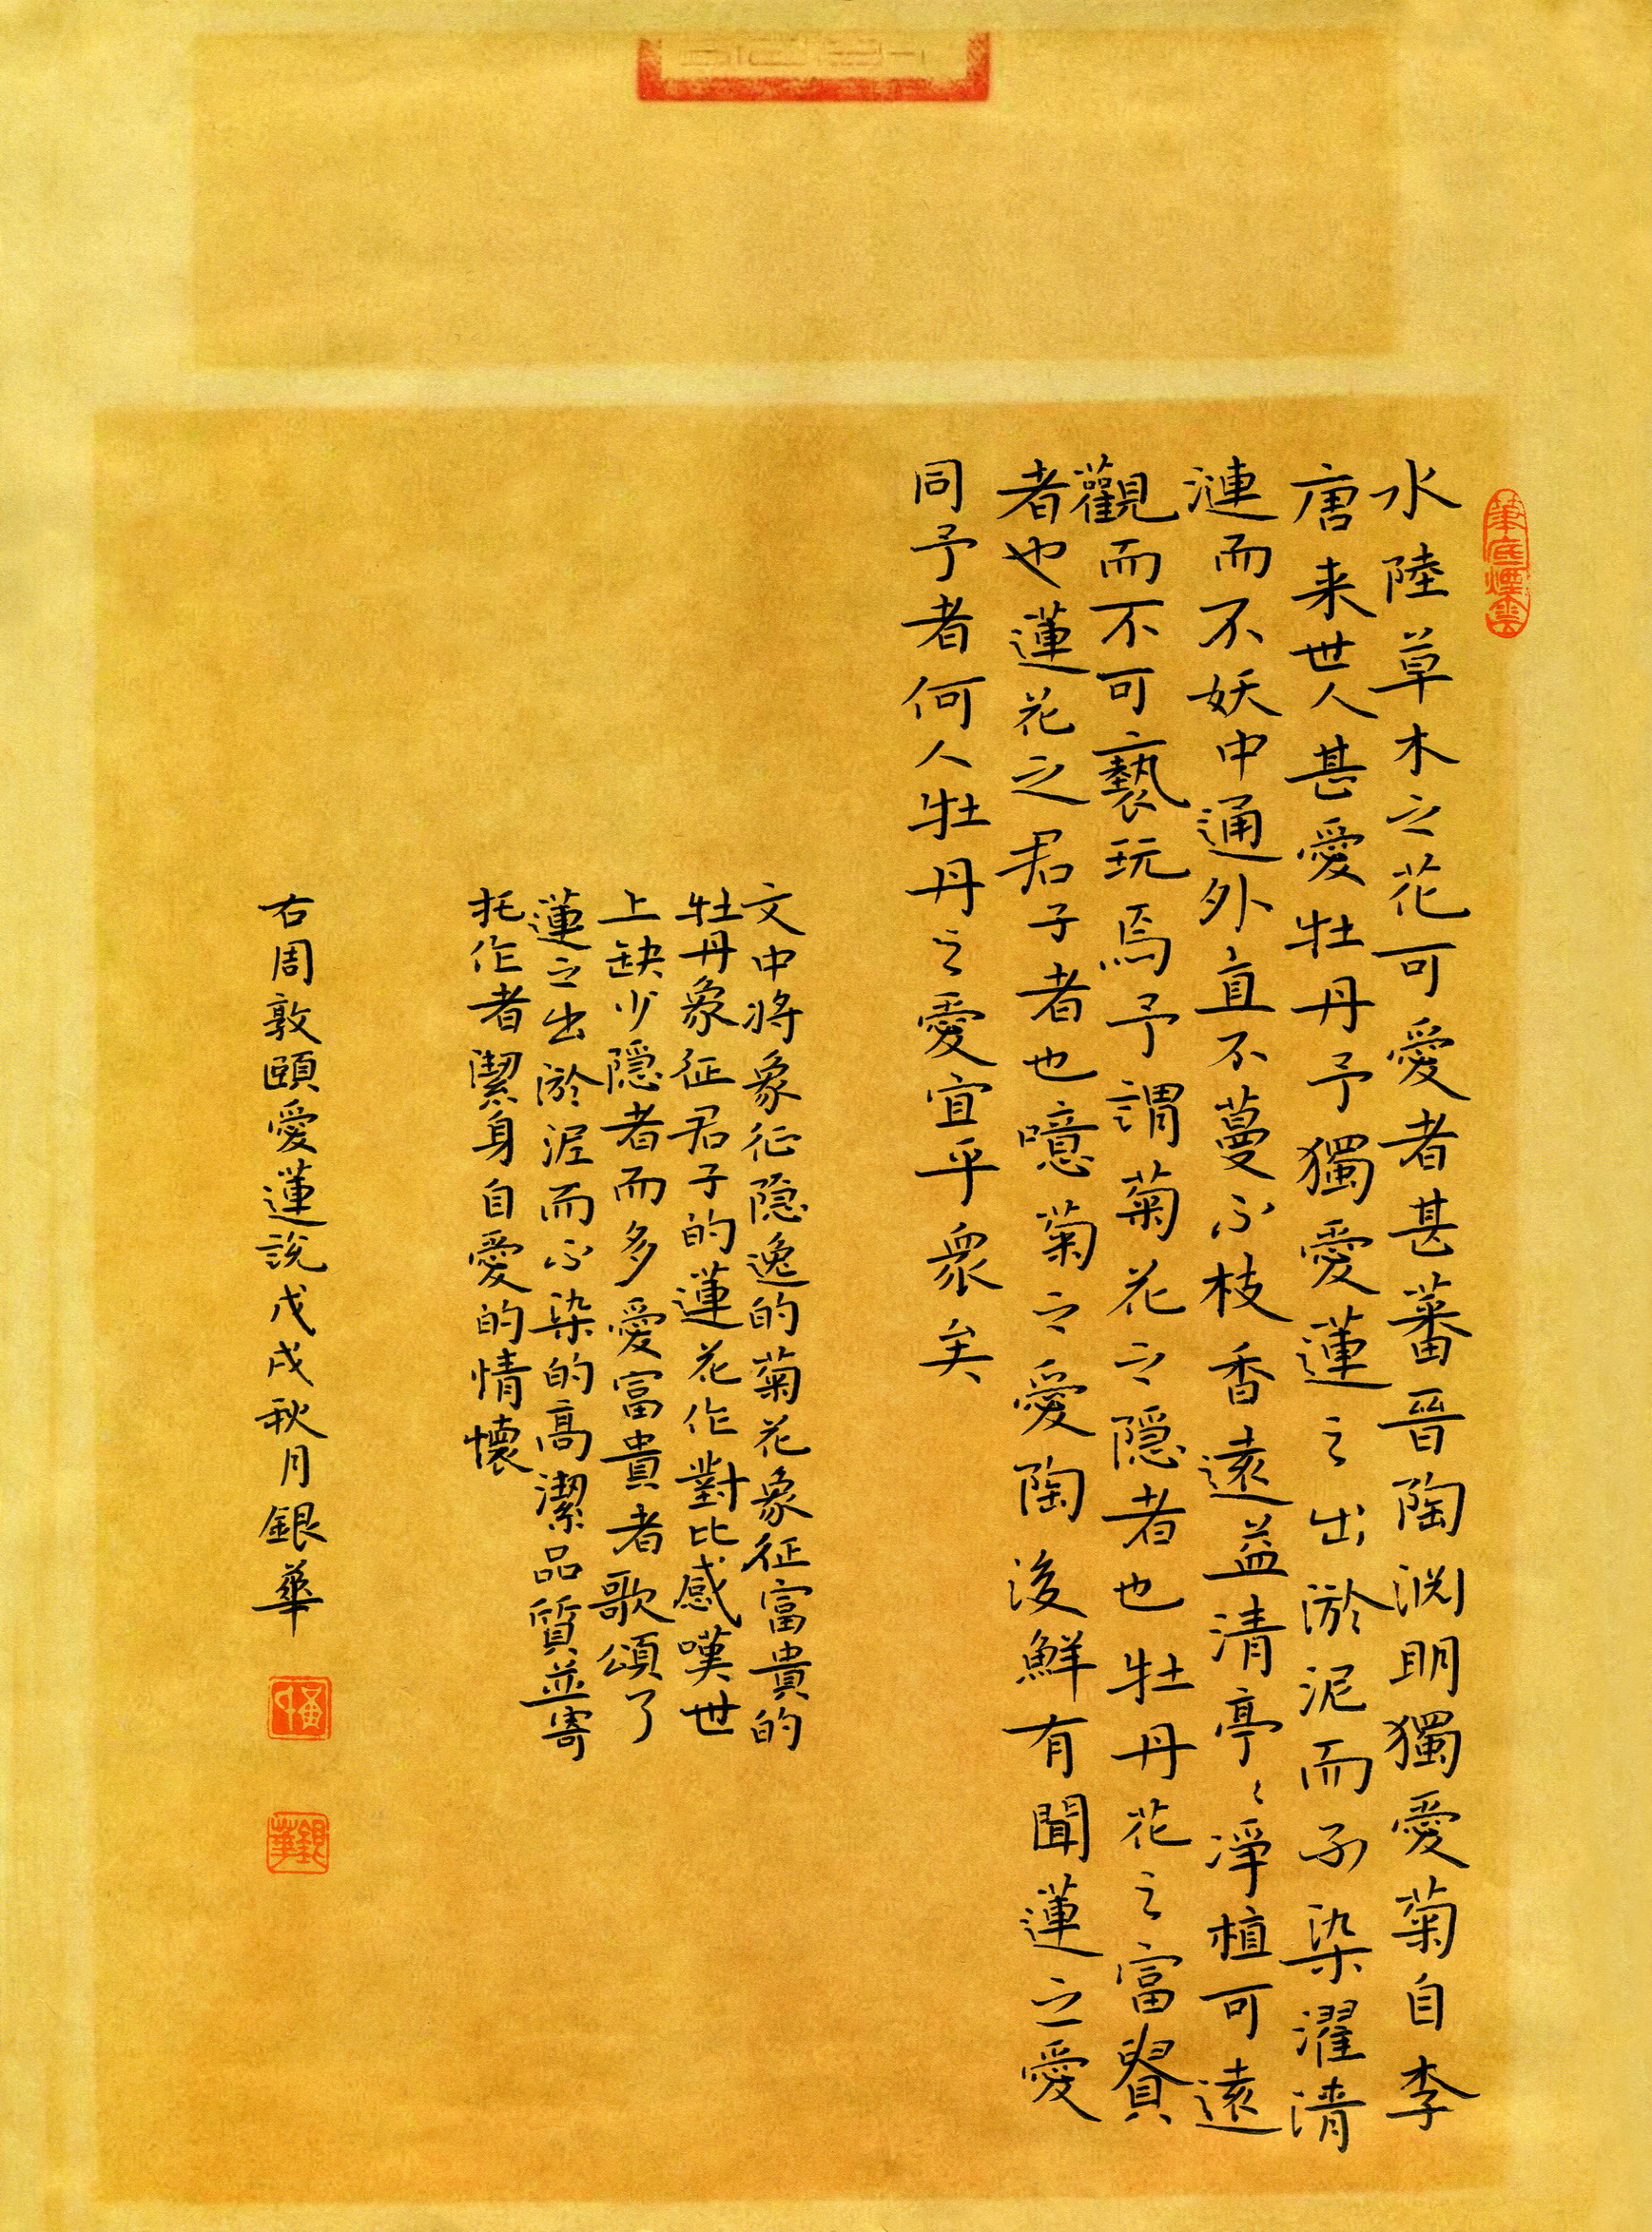 筆底煙雲
水陸草木之花可愛者甚蕃晉陶渊明獨愛菊自李
唐来世人甚愛牡丹予獨愛蓮之出淤泥而不染濯清
漣而不妖中通外直不蔓不枝香遠益清亭〻淨植可遠
觀而不可褻玩焉予謂菊花之隱者也牡丹花之富貴
者也蓮花之君子者也噫菊之愛陶後鮮有聞蓮之愛
同予者何人牡丹之愛宜乎衆矣
文中将象征隐逸的菊花象征富貴的
牡丹象征君子的蓮花作對比感嘆世
上缺少隱者而多愛富貴者歌頌了
蓮之出淤泥而不染的高潔品質並寄
托作者潔身自愛的情懷
右周敦頤愛蓮説戊戌秋月銀華
銀華